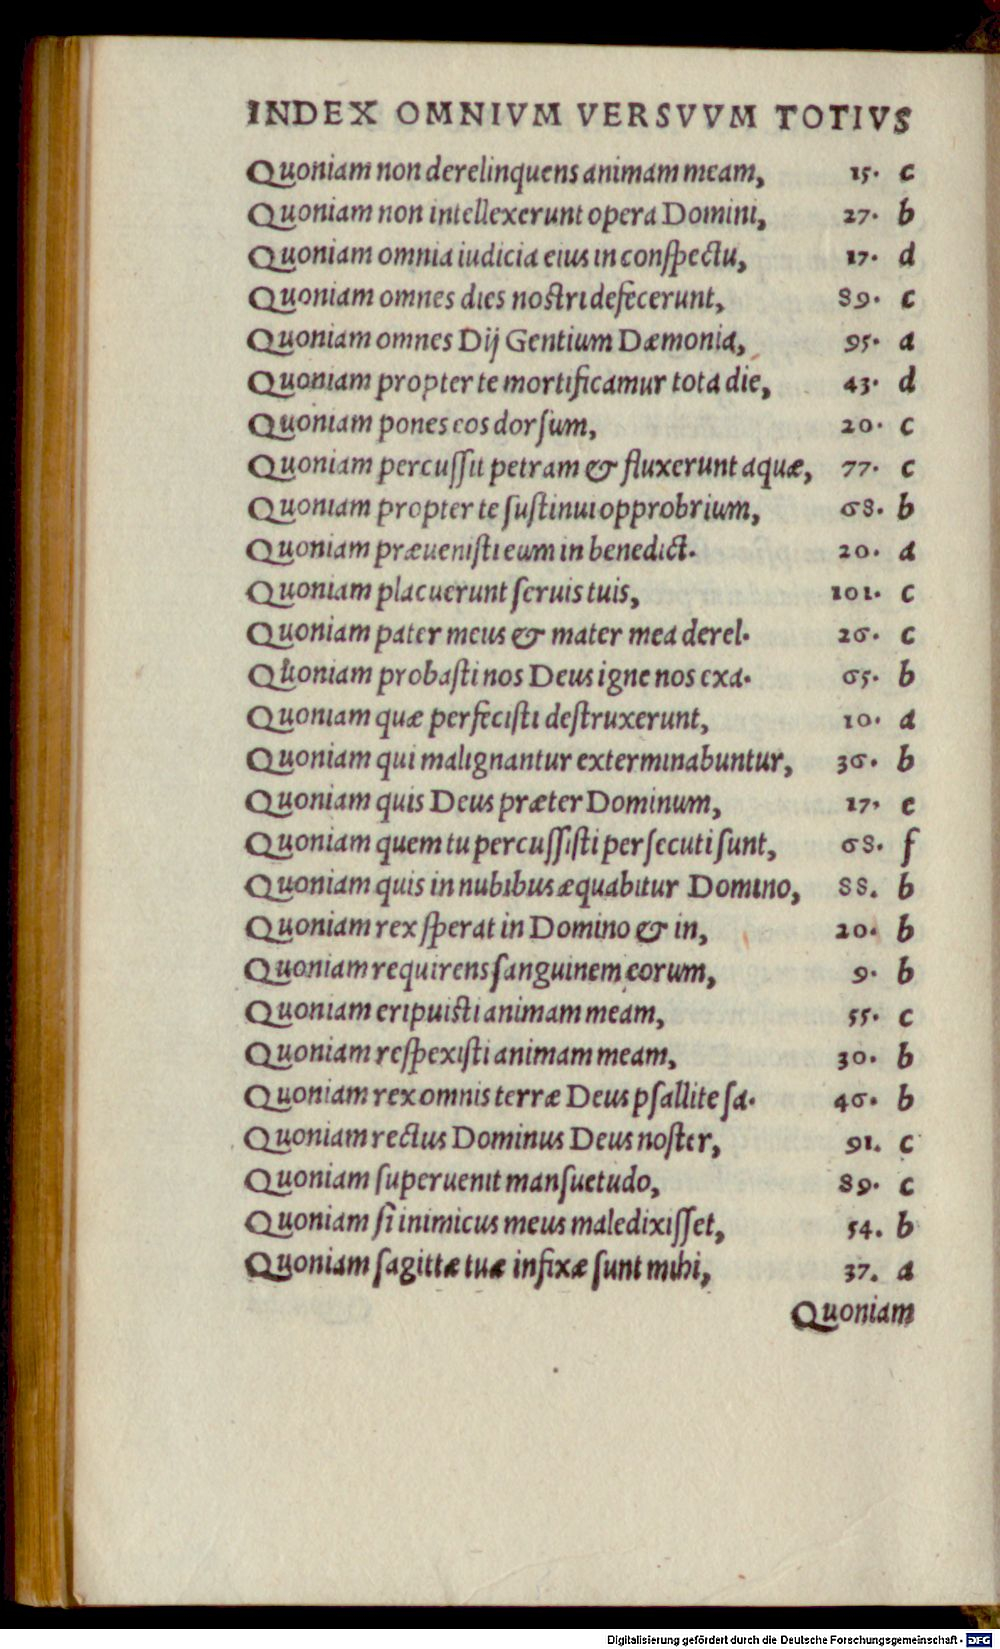 INDEX OMNIVM VERSVVM TOTIVS
Quoniam non derelinquens animam meam, 15. c
Quoniam non intellexerunt opera Domini, 27. b
Quoniam omnia iudicia eius in conſpectu, 17. d
Quoniam omnes dies noſtri defecerunt, 89. c
Quoniam omnes Dij Gentium Dæmonia, 95. a
Quoniam propter te mortificamur tota die, 43. d
Quoniam pones eos dorſum, 20. c
Quoniam percuſſit petram & fluxerunt aquæ, 77. c
Quoniam propter te ſuſtinui opprobrium, 68. b
Quoniam præueniſti eum in benedict. 20. a
Quoniam placuerunt ſeruis tuis, 101. c
Quoniam pater meus & mater mea derel. 26. c
Quoniam probaſti nos Deus igne nos exa. 65. b
Quoniam quæ perfeciſti deſtruxerunt, 10. a
Quoniam qui malignantur exterminabuntur, 36. b
Quoniam quis Deus præter Dominum, 17. e
Quoniam quem tu percuſſiſti perſecuti ſunt, 68. f
Quoniam quis in nubibus æquabitur Domino, 88. b
Quoniam rex ſperat in Domino & in, 20. b
Quoniam requirens ſanguinem eorum, 9. b
Quoniam eripuiſti animam meam, 55. c
Quoniam reſpexiſti animam meam, 30. b
Quoniam rex omnis terræ Deus pſallite ſa. 46. b
Quoniam rectus Dominus Deus noſter, 91. c
Quoniam ſuperuenit manſuetudo, 89. c
Quoniam ſi inimicus meus maledixiſſet, 54. b
Quoniam ſagittæ tuæ infixæ ſunt mihi, 37. a
Quoniam
Digitalisierung gefördert durch die Deutsche Forschungsgemeinschaft - DFG